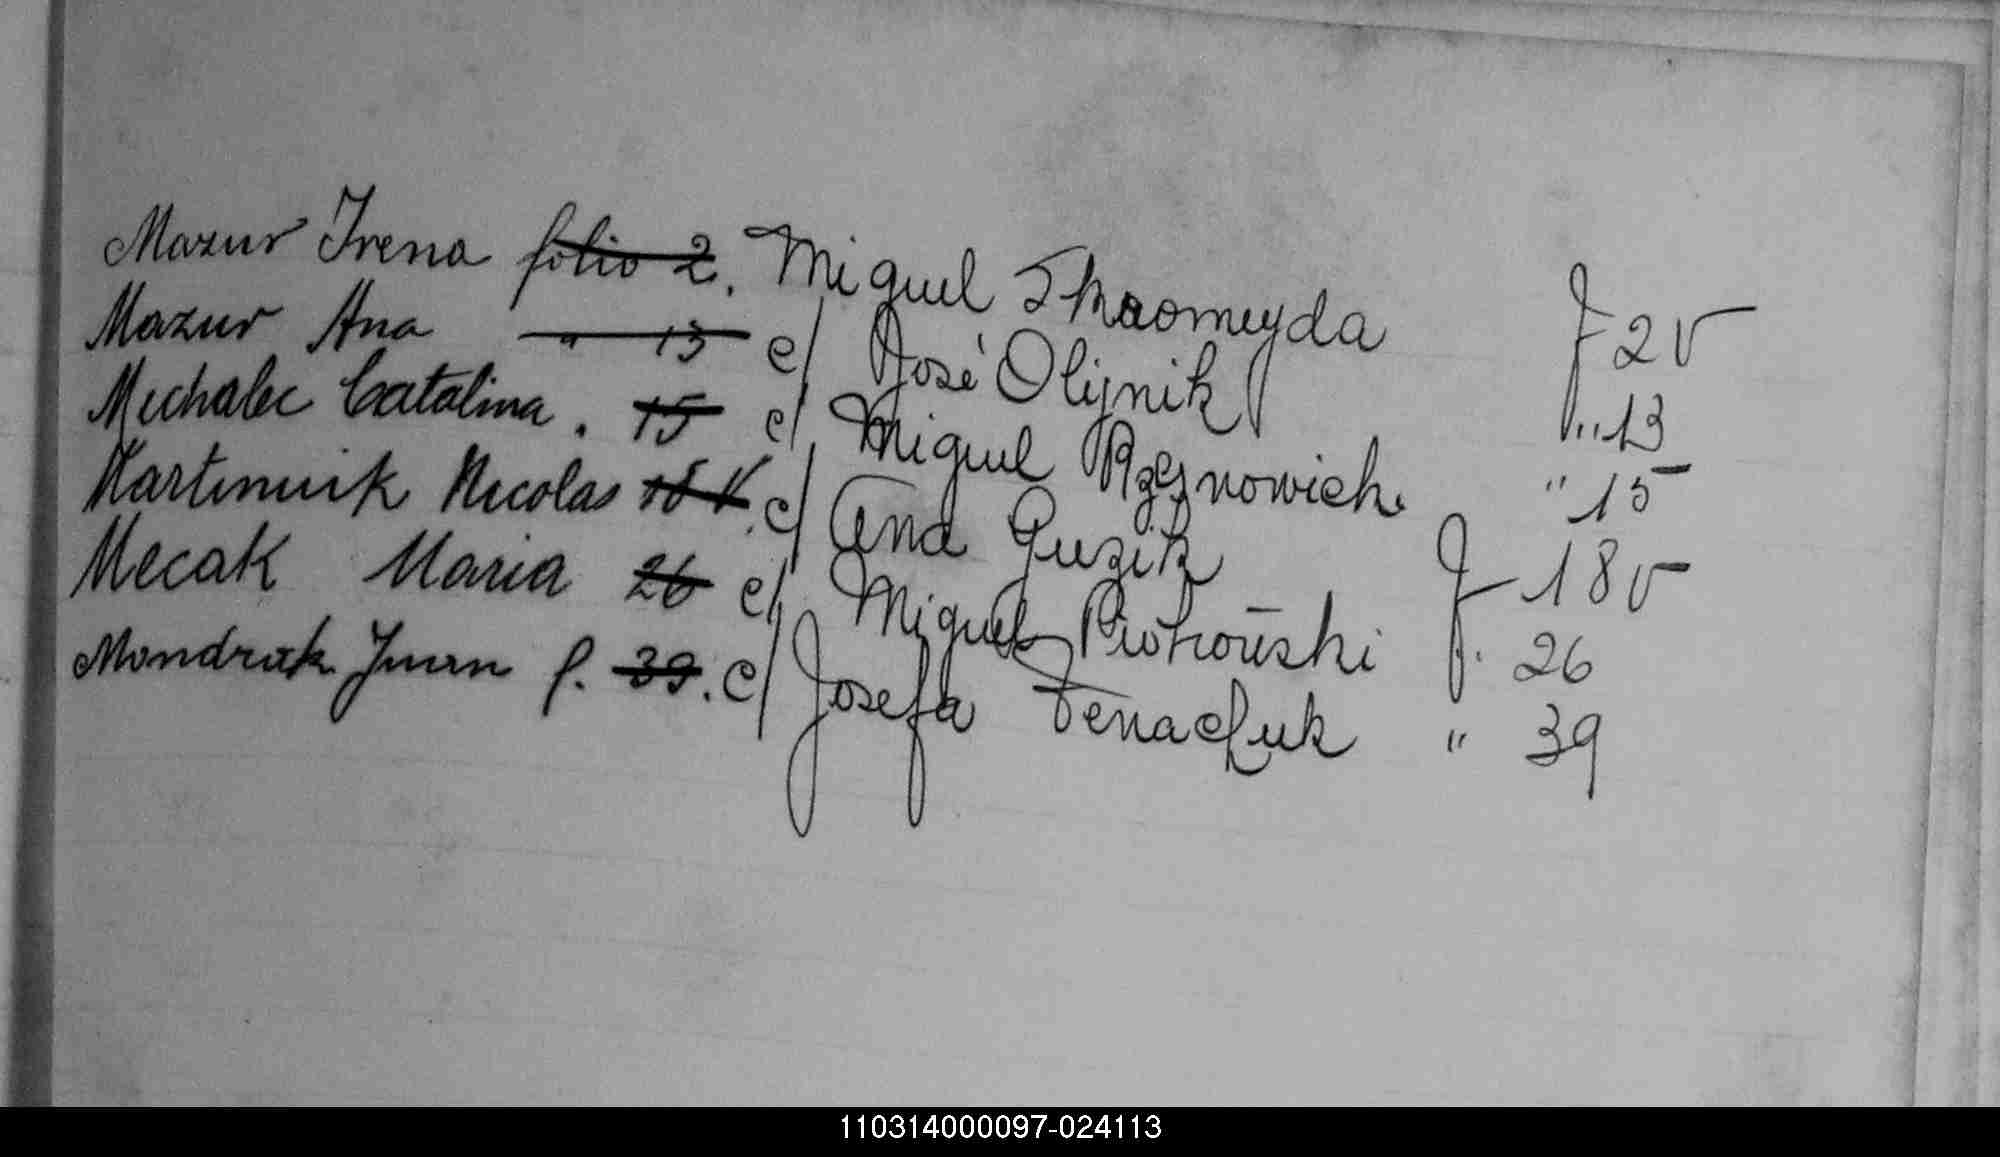 Mazur Irena folio 2. Miguel Skromeyda f 2v
Mazur Ana " 13 c/ José Olijnik " 13
Mechalec Catalina. 15 c/ Miguel Rzeznowich " 15
Martiniuk Nicolas 18 V. c/ Ana Guzik f 18v
Mecak Maria 26 c/ Miguel Piotrowski f. 26
Mondrak Juan f. 39. c/ Josefa Tenachuk " 39
110314000097-024113